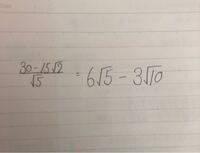 30-15√2/√5 = 6√5 - 3√10